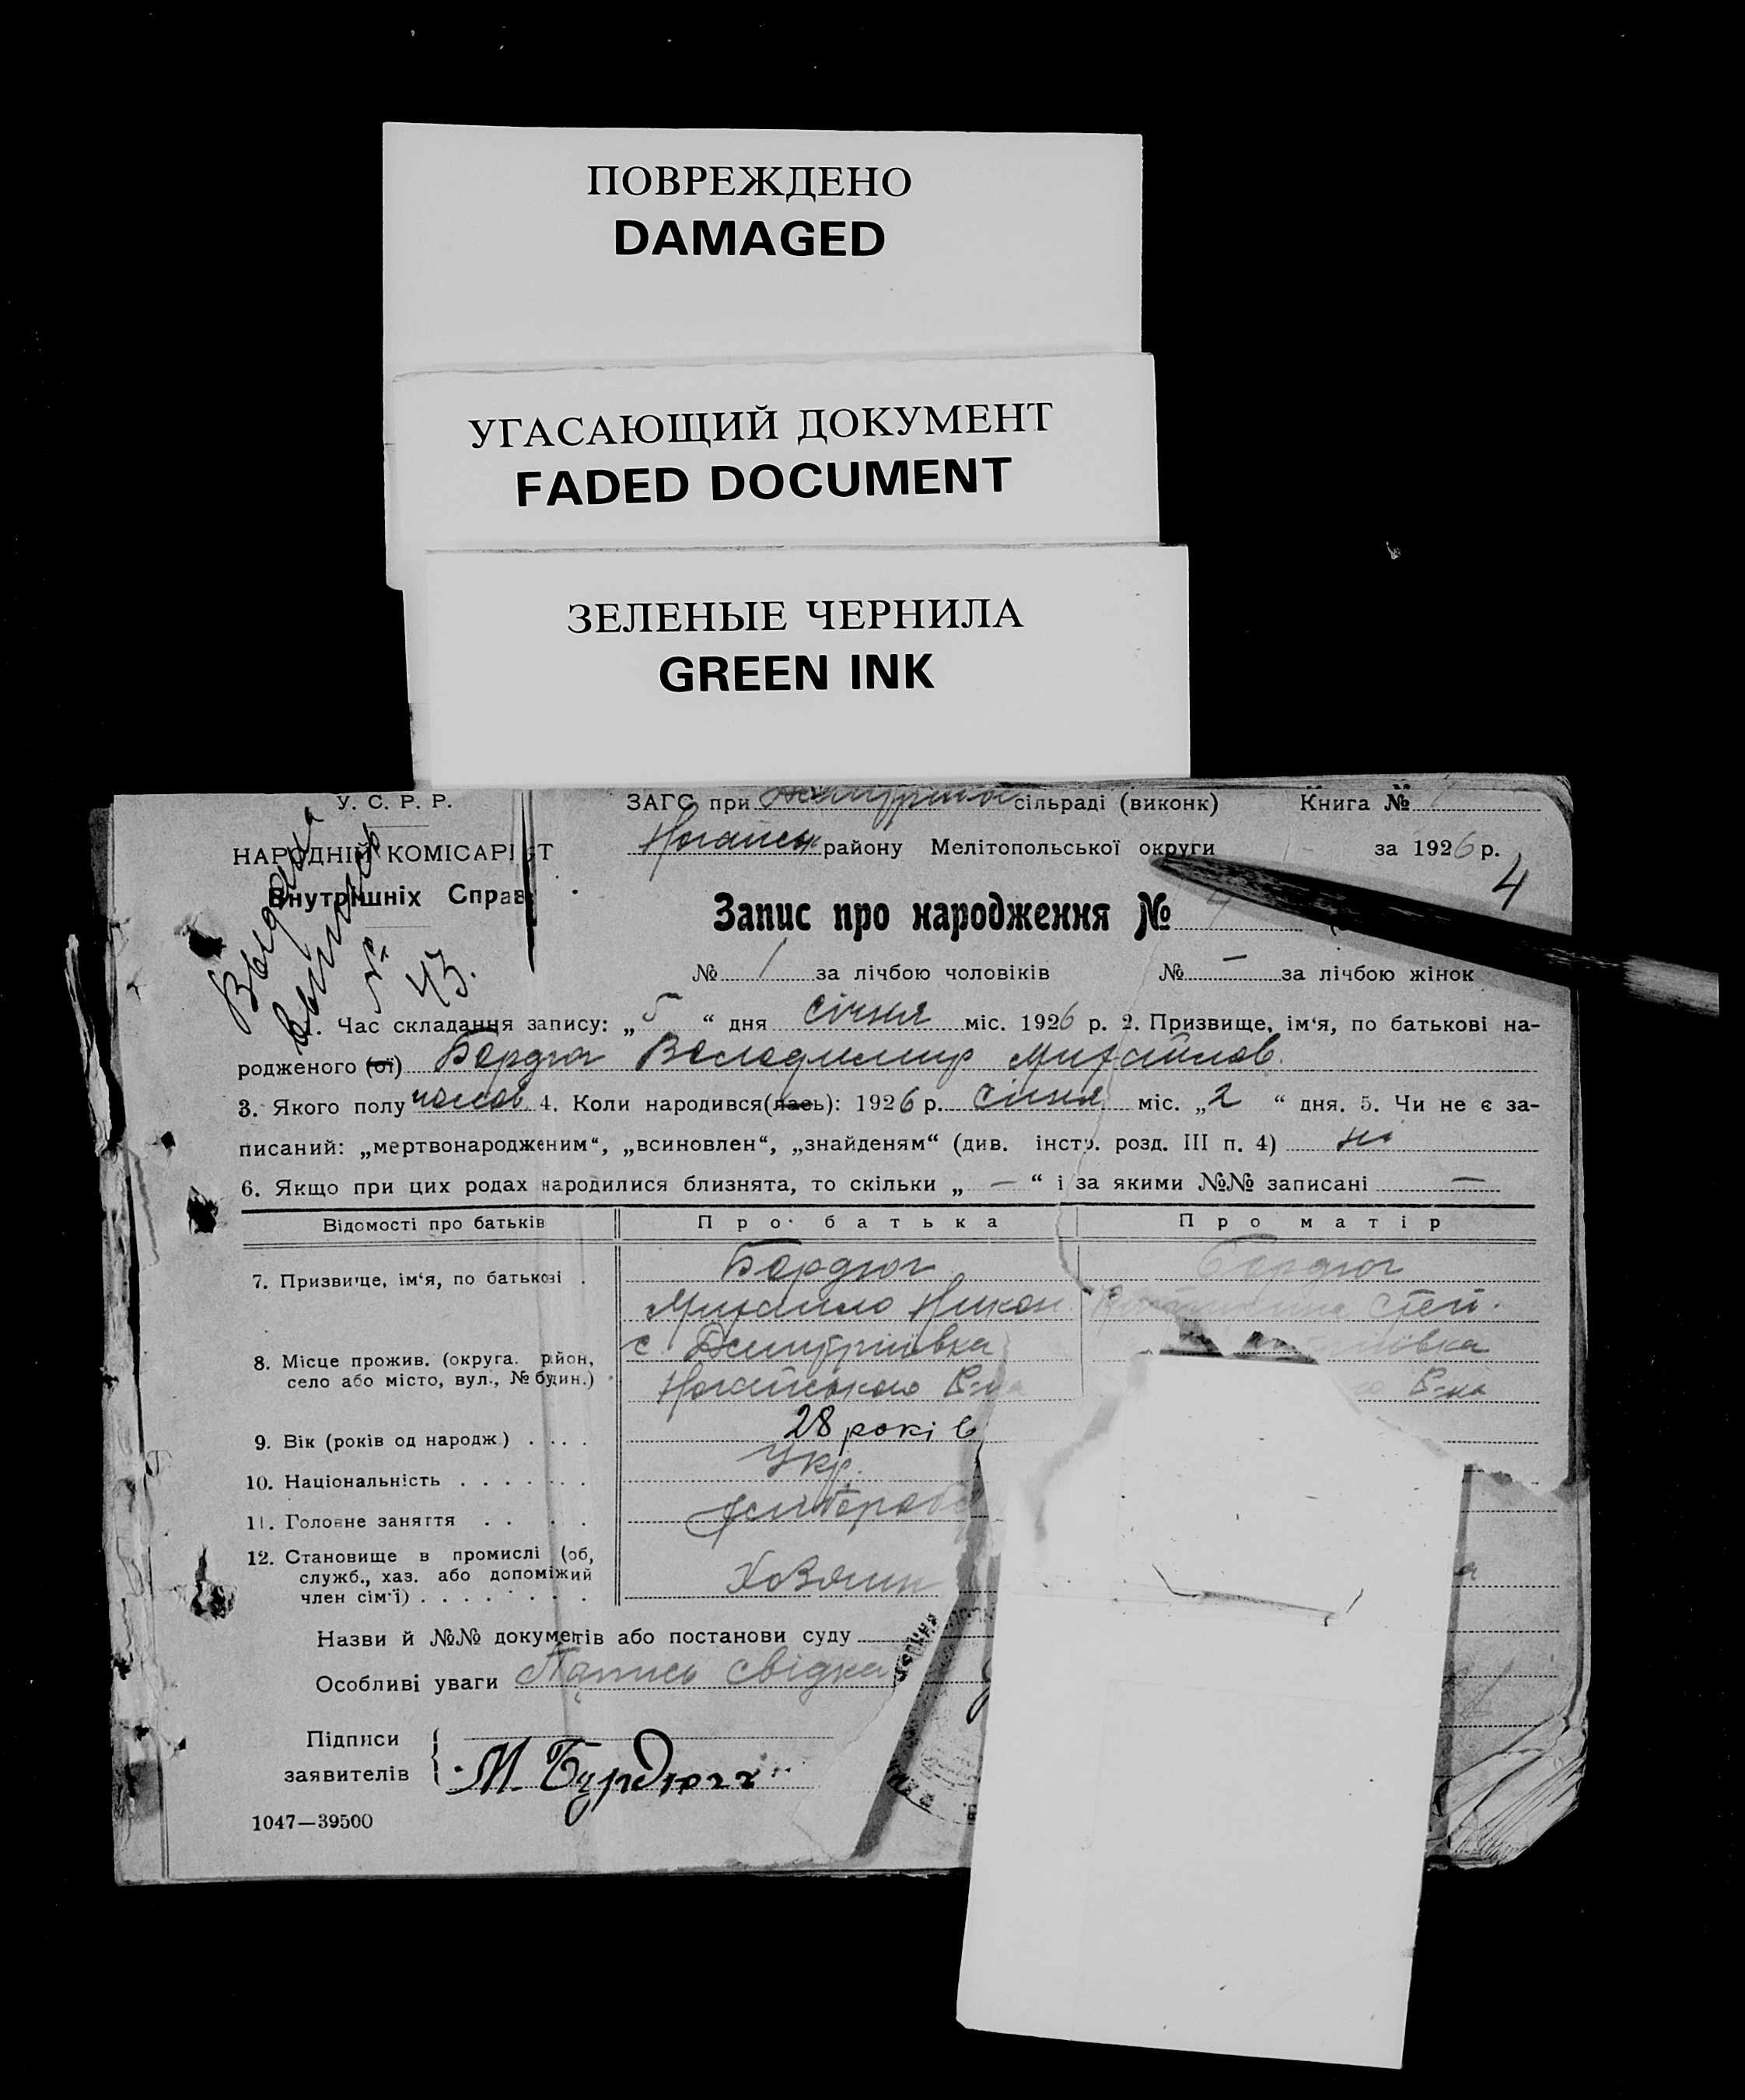 ПОВРЕЖДЕНО
DAMAGED
УГАСАЮЩИЙ ДОКУМЕНТ
FADED DOCUMENT
ЗЕЛЕНЫЕ ЧЕРНИЛА
GREEN INK
У. С. Р. Р.
НАРОДНІЙ КОМІСАРІЯТ
Внутрішніх Справ
№ 43.
ЗАГС при сільраді (виконк) Книга №
Ногайськ району Мелітопольської округи за 1926 р.
4
Запис про народження №
№ 1 за лічбою чоловіків № — за лічбою жінок
1. Час складання запису: „5“ дня січня міс. 1926 р. 2. Призвище, ім‘я, по батькові на-
родженого (ої) Бордюг Володимир Михайлов.
3. Якого полу чолов. 4. Коли народився(лась): 1926 р. Січня міс. „2“ дня. 5. Чи не є за-
писаний: „мертвонародженим“, „всиновлен“, „знайденям“ (див. інстр. розд. III п. 4) ні
6. Якщо при цих родах народилися близнята, то скільки „ — “ і за якими №№ записані —
Відомості про батьків Про батька Про матір
7. Призвище, ім‘я, по батькові . Бордюг Бордюг
Михайло Никон. Степ.
с. Дмитрівка
8. Місце прожив. (округа. район,
село або місто, вул., № будин.) Ногайського Р-на Р-на
9. Вік (років од народж.) . . . . 28 років
10. Національність . . . . . . . Укр.
11. Головне заняття . . . .
12. Становище в промислі (об,
служб., хаз. або допоміжний
член сім'ї) . . . . . . . . Хозяин
Назви й №№ документів або постанови суду
Особливі уваги Подпись свідка
Підписи
заявителів М. Бурдюг
1047—39500